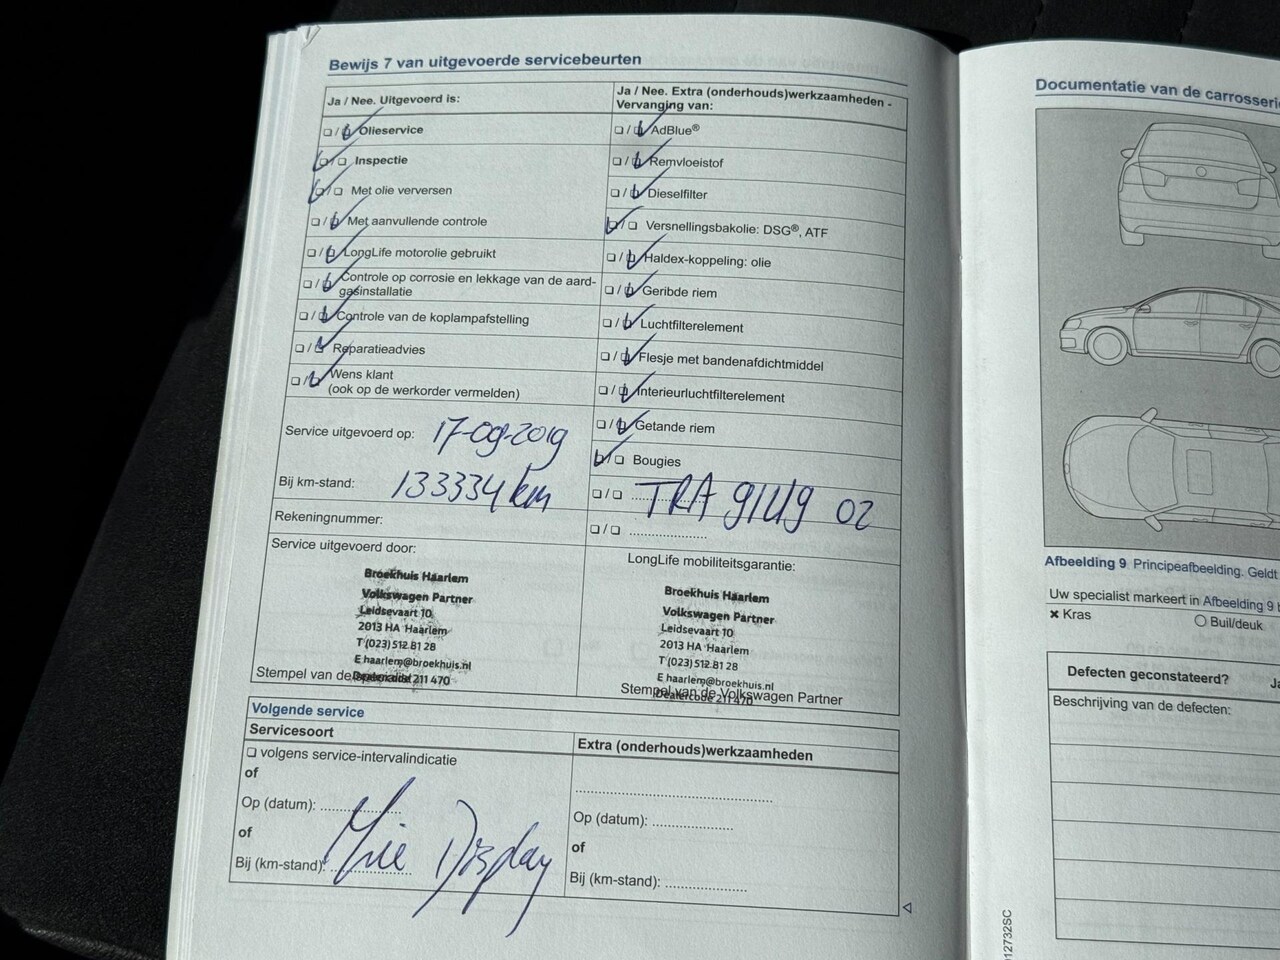 Bewijs 7 van uitgevoerde servicebeurten
Ja / Nee. Uitgevoerd is:
❏ / ❏ Olieservice
❏ / ❏ Inspectie
❏ / ❏ Met olie verversen
❏ / ❏ Met aanvullende controle
❏ / ❏ LongLife motorolie gebruikt
❏ / ❏ Controle op corrosie en lekkage van de aard-
gasinstallatie
❏ / ❏ Controle van de koplampafstelling
❏ / ❏ Reparatieadvies
❏ / ❏ Wens klant
(ook op de werkorder vermelden)
Service uitgevoerd op: 17-09-2019
Bij km-stand: 133334 km
Rekeningnummer:
Ja / Nee. Extra (onderhouds)werkzaamheden -
Vervanging van:
❏ / ❏ AdBlue®
❏ / ❏ Remvloeistof
❏ / ❏ Dieselfilter
❏ / ❏ Versnellingsbakolie: DSG®, ATF
❏ / ❏ Haldex-koppeling: olie
❏ / ❏ Geribde riem
❏ / ❏ Luchtfilterelement
❏ / ❏ Flesje met bandenafdichtmiddel
❏ / ❏ Interieurluchtfilterelement
❏ / ❏ Getande riem
❏ / ❏ Bougies
❏ / ❏ TRA 02
❏ / ❏ .....................
Service uitgevoerd door:
Broekhuis Haarlem
Volkswagen Partner
Leidsevaart 10
2013 HA Haarlem
T (023) 512 81 28
E haarlem@broekhuis.nl
Dealercode 211 470
Stempel van de
LongLife mobiliteitsgarantie:
Broekhuis Haarlem
Volkswagen Partner
Leidsevaart 10
2013 HA Haarlem
T (023) 512 81 28
E haarlem@broekhuis.nl
Dealercode 211 470
Stempel van de Volkswagen Partner
Volgende service
Servicesoort
❏ volgens service-intervalindicatie
of
Op (datum): .....................
of
Bij (km-stand): .....................
Display
Extra (onderhouds)werkzaamheden
..................................................
Op (datum): .....................
of
Bij (km-stand): .....................
Documentatie van de carrosserie
Afbeelding 9 Principeafbeelding. Geldt
Uw specialist markeert in Afbeelding 9
× Kras
○ Buil/deuk
Defecten geconstateerd?
Ja
Beschrijving van de defecten:
012732SC